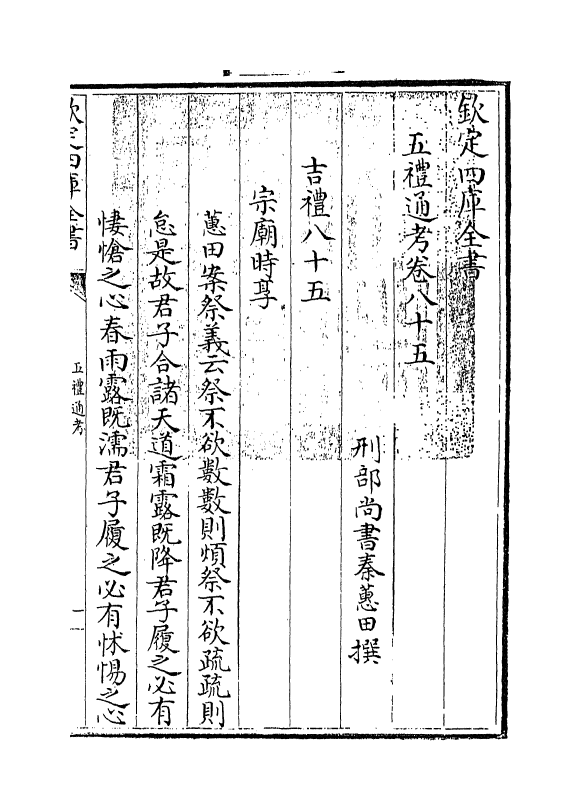 欽定四庫全書
五禮通考卷八十五
刑部尚書秦蕙田撰
吉禮八十五
宗廟時享
蕙田案祭義云祭不欲數數則煩祭不欲疏疏則
怠是故君子合諸天道霜露既降君子履之必有
悽愴之心春雨露既濡君子履之必有怵惕之心
欽定四庫全書
五禮通考
一